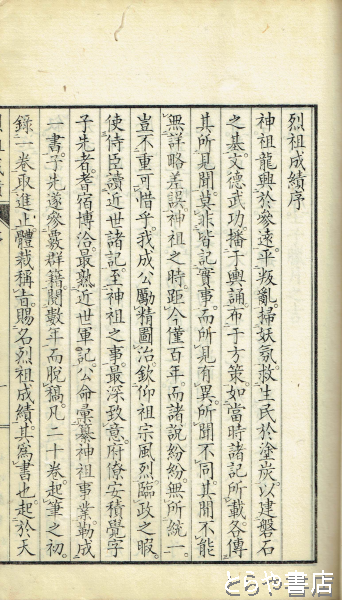 烈祖成績序
神祖龍興於參遠平叛亂掃妖氛救生民於塗炭以建磐石
之基文德武功播于輿誦布于方策如當時諸記所載各傳
其所見聞莫非皆記實事而所見有異所聞不同其間不能
無詳略差誤神祖之時距今僅百年而諸說紛紛無所統一
豈不重可惜乎我成公勵精圖治欽仰祖宗風烈臨政之暇
使侍臣讀近世諸記至神祖之事最深致意府僚安積覺字
子先者耆宿博洽最熟近世軍記公命彙纂神祖事業勒成
一書子先遂參覈群籍閱數年而脫稿凡二十卷起筆之初
錄一卷取進止體裁稱旨賜名烈祖成績其爲書也起於天
とらや書店